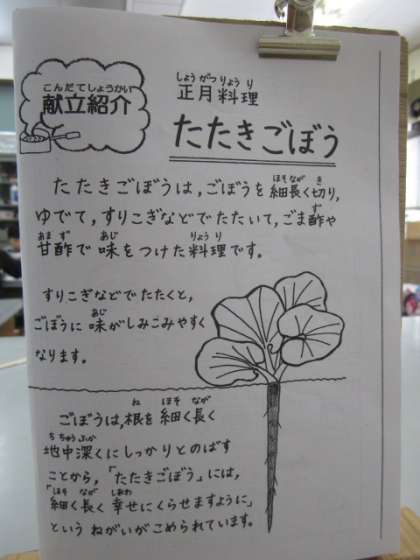 こんだてしょうかい
献立紹介
しょうがつりょうり
正月料理
たたきごぼう
たたきごぼうは,ごぼうを細長く切り,
ゆでて,すりこぎなどでたたいて,ごま酢や
甘酢で味をつけた料理です。
すりこぎなどでたたくと,
ごぼうに味がしみこみやすく
なります。
ごぼうは,根を細く長く
地中深くにしっかりとのばす
ことから,「たたきごぼう」には,
「細く長く幸せにくらせますように」
というねがいがこめられています。